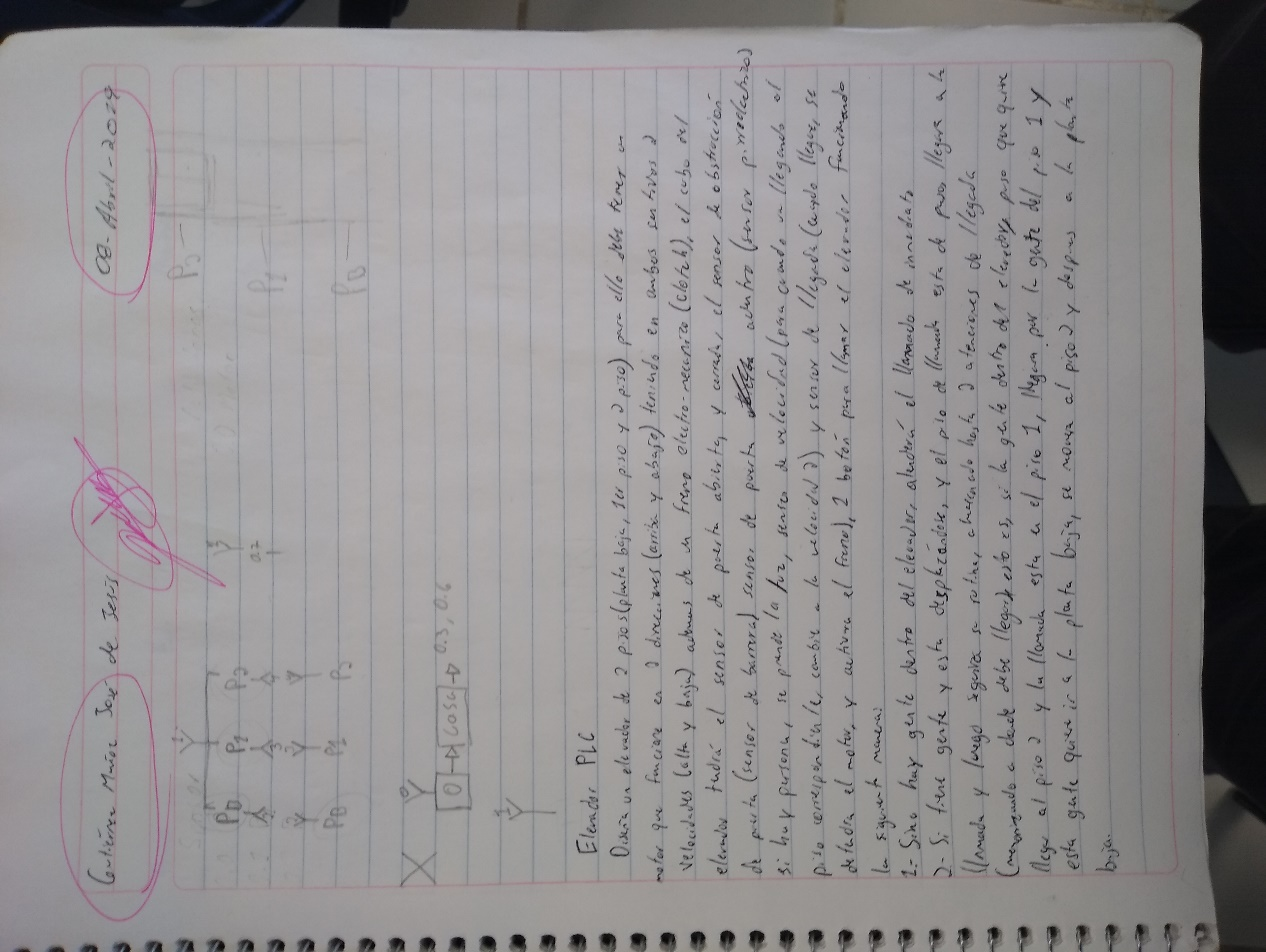 Gutiérrez Muñoz José de Jesús
08-Abril-2024
P2
P1
PB
PB P1 P2
PB P1 P2
X Y
0 → cosa → 0.3, 0.6
Elevador PLC
Diseña un elevador de 2 pisos (planta baja, 1er piso y 2 piso) para ello debe tener un
motor que funcione en 2 direcciones (arriba y abajo) teniendo en ambos sentidos 2
velocidades (alta y baja) ademas de un freno electro-mecanico (clotch), el cubo del
elevador tendrá el sensor de puerta abierta, y cerrada, el sensor de obstrucción
de puerta (sensor de barrera) sensor de puerta adentro (sensor piroelectrico)
si hay persona, se prende la luz, sensor de velocidad (para cuando va llegando al
piso correspondiente, cambie a la velocidad 2) y sensor de llegada (cuando llegue, se
detedra el motor, y activara el freno), 1 botón para llamar el elevador funcionando
la siguiente manera:
1.- Si no hay gente dentro del elevador, atenderá el llamado de inmediato
2.- Si tiene gente y esta desplazandose, y el piso de llamada esta de paso, llegara a la
llamada y luego seguira su rutina, abarcando hasta 2 atenciones de llegada
(memorizando a donde debe llegar) esto es, si la gente dentro del elevador piso que quiere
llegar al piso 2 y la llamada esta en el piso 1, llegara por la gente del piso 1 y
esta gente quiere ir a la planta baja, se movera al piso 2 y despues a la planta
baja.